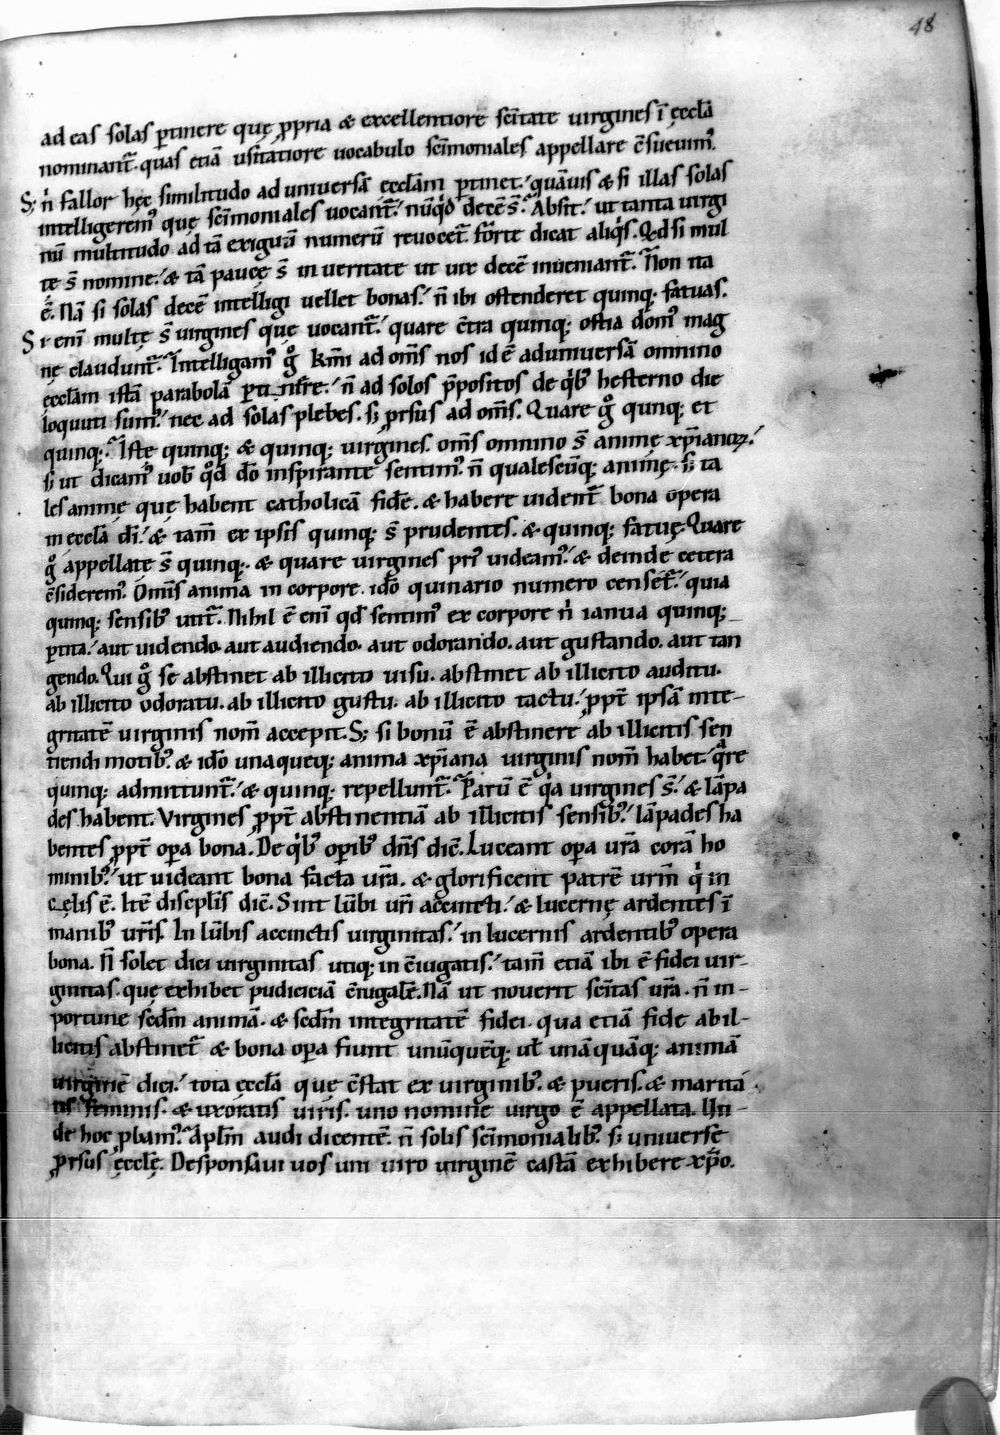 48
ad eas solas ꝑtinere quę ꝓpria & excellentiore sc̄itate virgines ī ęccl̄a
nominant᷑. quas etiā usitatiore uocabulo sc̄imoniales appellare c̄sueuim᷒.
S; n̄ fallor hęc similitudo ad uniuersā ęccl̄am ꝑtinet. quāuis & si illas solas
intelligerem᷒ quę sc̄imoniales uocant᷑. nūq̇d decē s̄? Absit. ut tanta uirgi
nū multitudo ad tā exiguū numerū reuocet᷑. forte dicat aliq̇s. Qd si mul
te s̄ nomine. & tā paucę s̄ in ueritate ut uix decē inueniant᷑. Non ita
ē. Nā si solas decē intelligi uellet bonas. n̄ ibi ostenderet quinq; fatuas.
Si enī multę s̄ virgines quę uocant᷑. quare c̄tra quinq; ostia dom᷒ mag
nę claudunt᷑. Intelligam᷒ g̊ km̄i ad om̄s nos id ē ad uniuersā omnino
ęccl̄am istā parabolā ꝑtinere. n̄ ad solos p̄positos de q̇b᷒ hesterno die
loquuti sum᷒. nec ad solas plebes. s; ꝓrsus ad om̄s. Quare g̊ qunq; et
quinq;. Iste quinq; & quinq; virgines. om̄s omnino s̄ animę xp̄ianoꝝ.
s; ut dicam᷒ uob̄ qd̊ dō inspirante sentim᷒. n̄ qualescūq; animę. s; ta
les animę quę habent catholicā fidē. & habere uident᷑ bona opera
in ęccl̄a dī. & tam̄ ex ipsis quinq; s̄ prudentes. & quinq; fatuę. Quare
g̊ appellate s̄ quinq;. & quare virgines pri᷒ uideam᷒. & deinde cetera
c̄siderem᷒. Om̄is anima in corpore. idō quinario numero censet᷑. quia
quinq; sensib᷒ utit᷑. Nihil ē enī qd̄ sentim᷒ ex corpore n̄ ianua quinq;
ꝑtita. aut uidendo. aut audiendo. aut odorando. aut gustando. aut tan
gendo. Qui g̊ se abstinet ab illicito uisu. abstinet ab illicito auditu.
ab illicito odoratu. ab illicito gustu. ab illicito tactu. ꝓpt̄ ipsā inte-
gritatē virginis nom̄ accepit. S; si bonū ē abstinere ab illicitis sen
tiendi motib᷒. & idō unaqueq; anima xp̄iana virginis nom̄ habet. q̄re
quinq; admittunt᷑. & quinq; repellunt᷑. Parū ē q̇a virgines s̄. & lāpa
des habent. Virgines ꝓpt̄ abstinentiā ab illicitis sensib᷒. lāpades ha
bentes ꝓpt̄ oꝑa bona. De q̇b᷒ oꝑib᷒ dn̄s dic̄. Luceant oꝑa ur̄a corā ho
minib᷒. ut uideant bona facta ur̄a. & glorificent patrē urm̄ q̇ in
cęlis ē. Itē discipl̄is dic̄. Sint lūbi urī accincti. & lucernę ardentes ī
manib᷒ ur̄is. In lūbis accinctis virginitas. in lucernis ardentib᷒ opera
bona. N̄ solet dici uirginitas utiq; in c̄iugatis. tam̄ etiā ibi ē fidei uir-
ginitas. quę exhibet pudiciciā c̄iugalē. Nā ut nouerit sc̄itas ur̄a. n̄ in-
portune sedm̄ animā. & sedm̄ integritatē fidei. qua etiā fide ab il-
licitis abstinet᷑ & bona oꝑa fiunt unūquēq; ul̄ unāquāq; animā
uirginē dici. tota ęccl̄a que c̄stat ex uirginib᷒. & pueris. & marita
tis feminis. & uxoratis viris. uno nomine virgo ē appellata. Un-
de hoc ꝓbam᷒? Apl̄m audi dicentē. n̄ solis sc̄imonialib᷒. s; uniuerse
ꝓrsus ęcclę. Desponsaui uos uni uiro uirginē castā exhibere xp̄o.